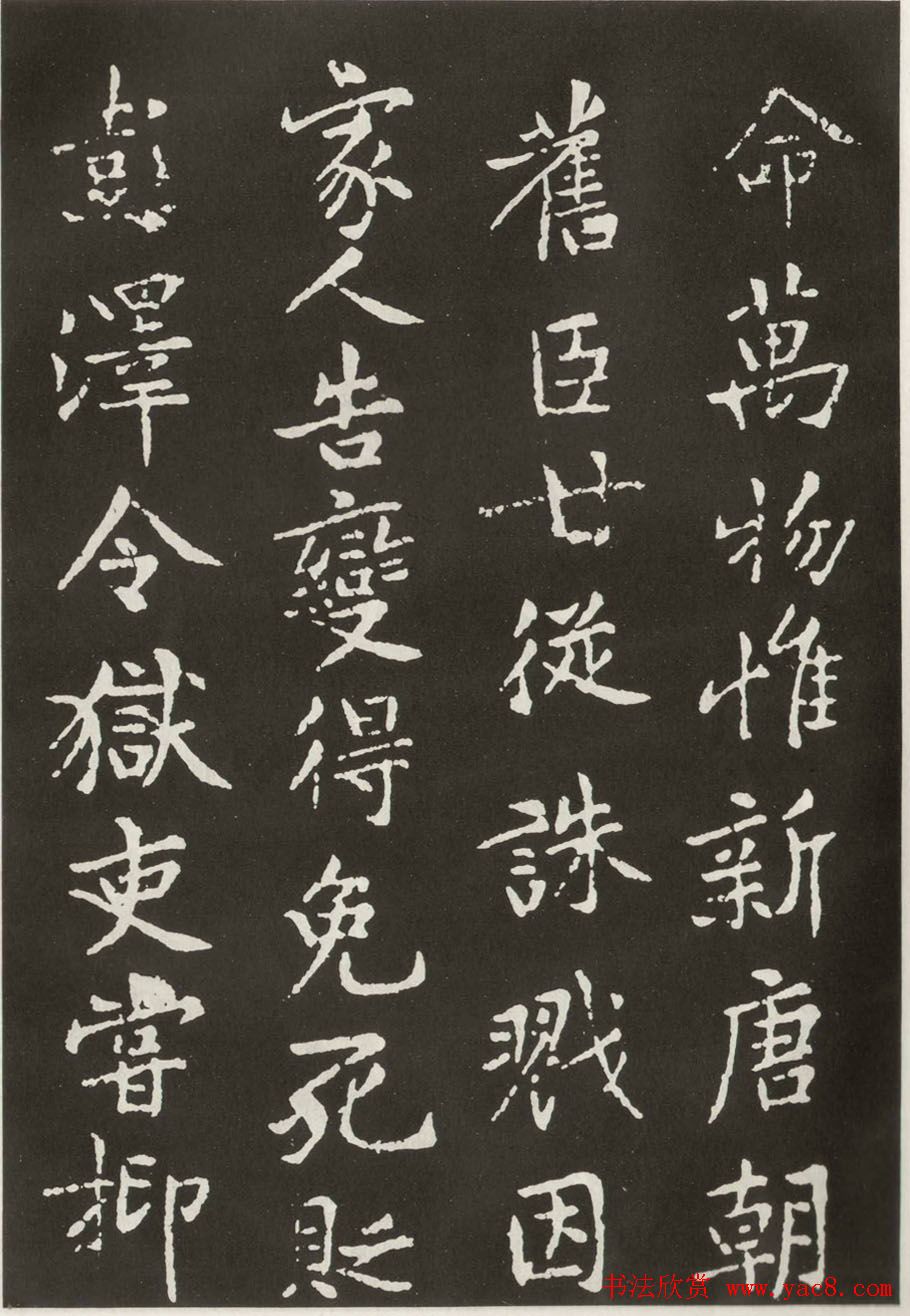 命萬物惟新唐朝
舊臣甘從誅戮因
家人告變得免死貶
彭澤令獄吏嘗抑
书法欣赏 www.yac8.com